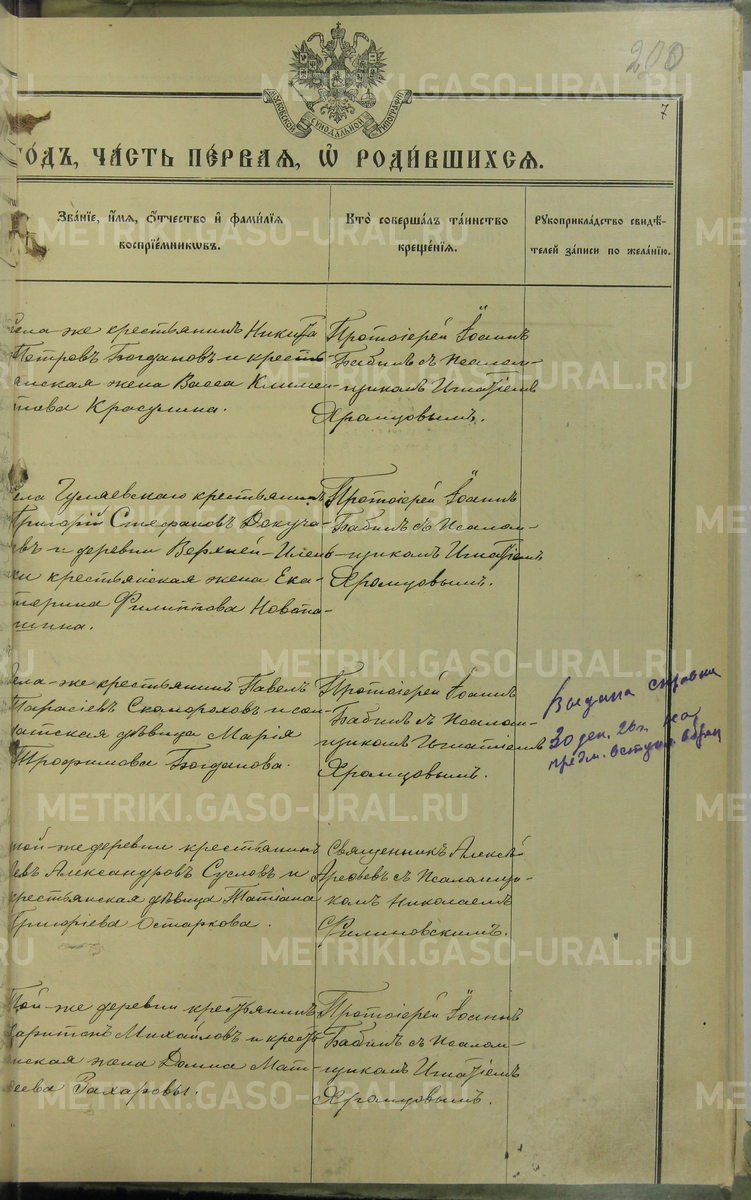 200
7
МОСКОВСКОЙ СИНОДАЛЬНОЙ ТИПОГРАФІИ
ГОДЪ, ЧАСТЬ ПЕРВАЯ, Ѡ РОДИВШИХСЯ.
Званіе, имя, отчество и фамилія
воспріемниковъ.
Кто совершалъ таинство
крещенія.
Рукоприкладство свидѣ-
телей записи по желанію.
села-же крестьянинъ Никита
Петровъ Богдановъ и кресть-
янская жена Васса Климен-
това Красулина.
Протоіерей Іоаннъ
Бабинъ съ Псалом-
щикомъ Игнатіемъ
Хромцовымъ.
села Гуляевскаго крестьянинъ
Григорій Стефановъ Докуча-
евъ и деревни Верхней-
крестьянская жена Ека-
терина Филиппова Новопа-
шина.
Протоіерей Іоаннъ
Бабинъ съ Псалом-
щикомъ Игнатіемъ
Хромцовымъ.
села-же крестьянинъ Павелъ
Тарасіевъ Скомороховъ и сол-
датская дѣвица Марія
Трофимова Богданова.
Протоіерей Іоаннъ
Бабинъ съ Псалом-
щикомъ Игнатіемъ
Хромцовымъ.
Выдана справка
30 дек. 26 г. на
предм. вступл. в брак
той-же деревни крестьянинъ
Александровъ Сусловъ и
крестьянская дѣвица Татіана
Григоріева Остаркова.
Священникъ Алексѣй
Арефьевъ съ Псаломщи-
комъ Николаемъ
Филиновскимъ.
Той-же деревни крестьянинъ
Харитонъ Михайловъ и кресть-
янская жена Домна Мат-
ѳеева Захаровы.
Протоіерей Іоаннъ
Бабинъ съ Псалом-
щикомъ Игнатіемъ
Хромцовымъ.
METRIKI.GASO-URAL.RU